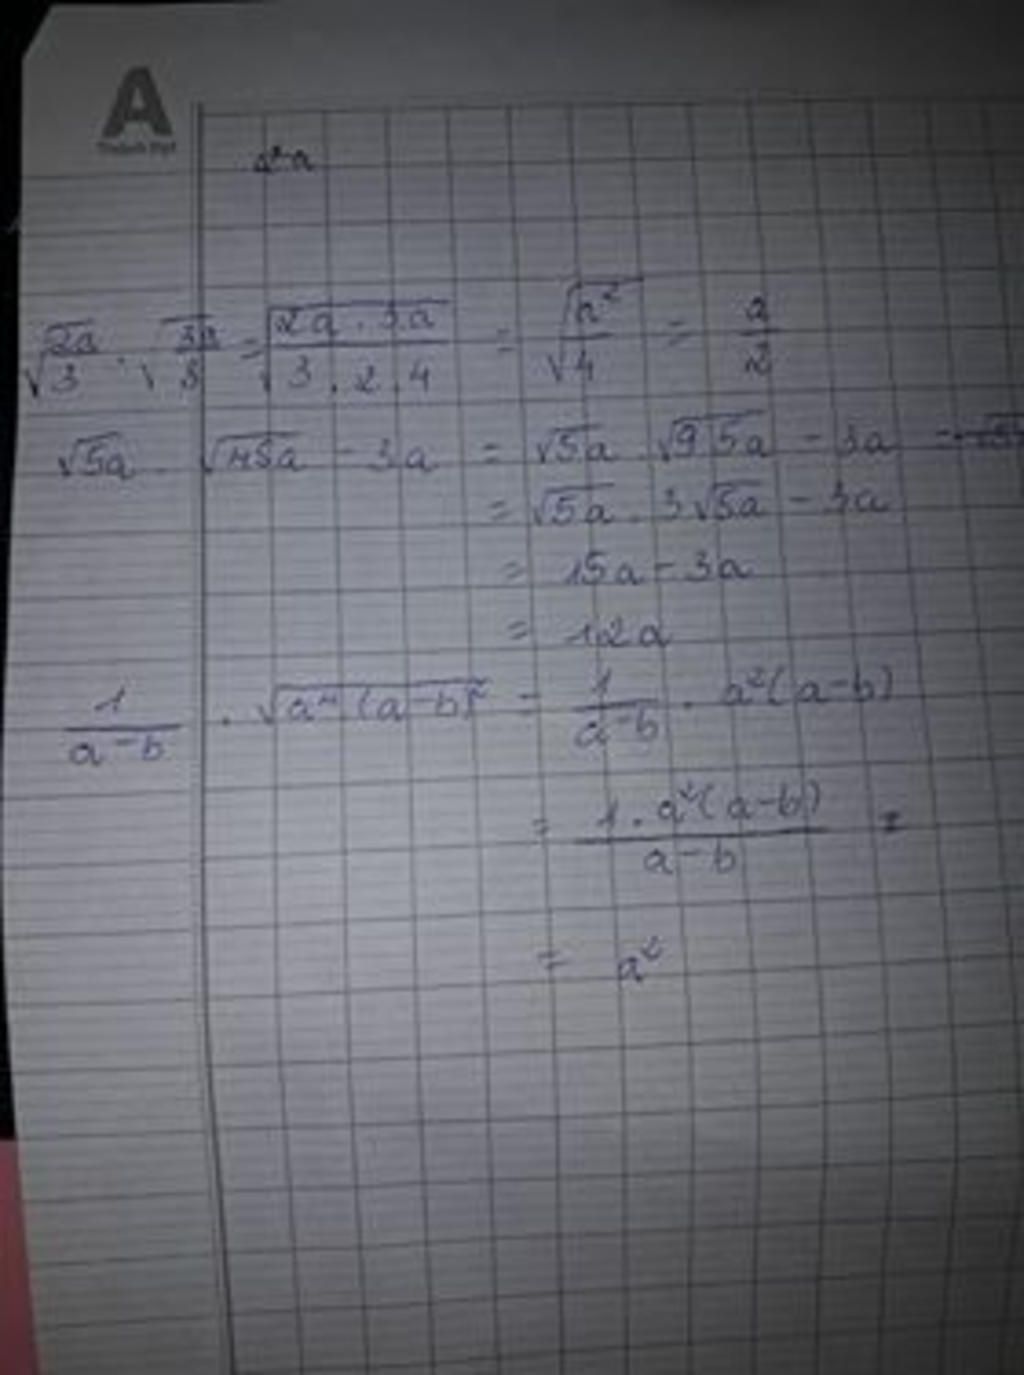 A
√2a/3 . √3a/8 = √(2a.3a)/(3.2.4) = √a²/√4 = a/2
√5a . √45a - 3a = √5a . √9.5a - 3a
= √5a . 3√5a - 3a
= 15a - 3a
= 12a
1/(a-b) . √a⁴(a-b)² = 1/(a-b) . a²(a-b)
= 1.a²(a-b)/(a-b) =
= a²